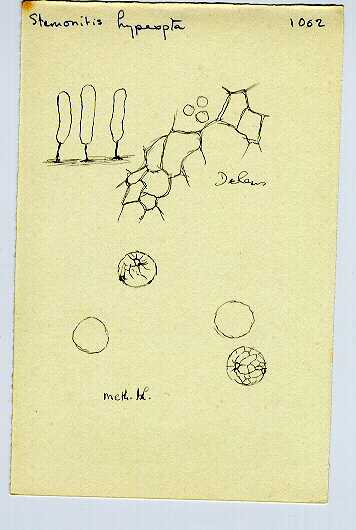 Stemonitis hyperopta 1002
meth. bl.